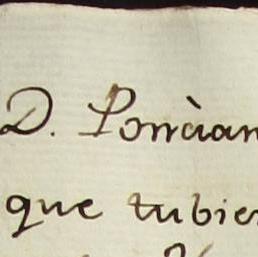 D. Poncian
que tubier